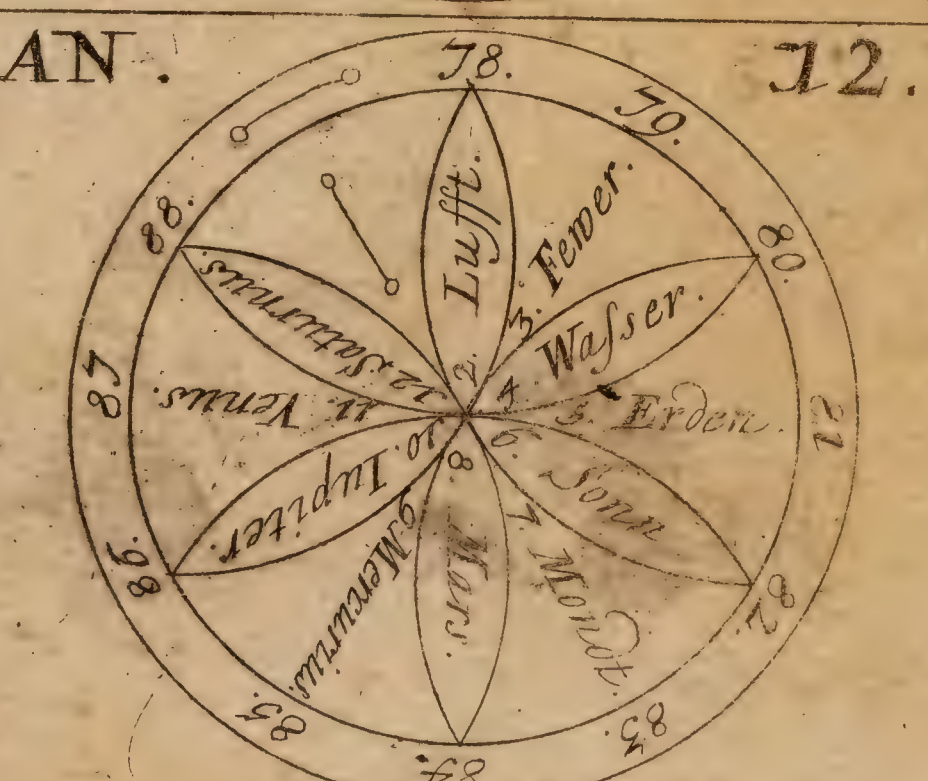 AN.
12.
78.
79.
80.
81
82.
83.
84
85.
86.
87
88.
2. Lufft.
3. Fewer.
4. Waſser.
5. Erden.
6. Sonn
7. Mondt.
8. Mars.
9. Mercurius.
10. Iupiter.
11. Venus.
12. Saturnus.